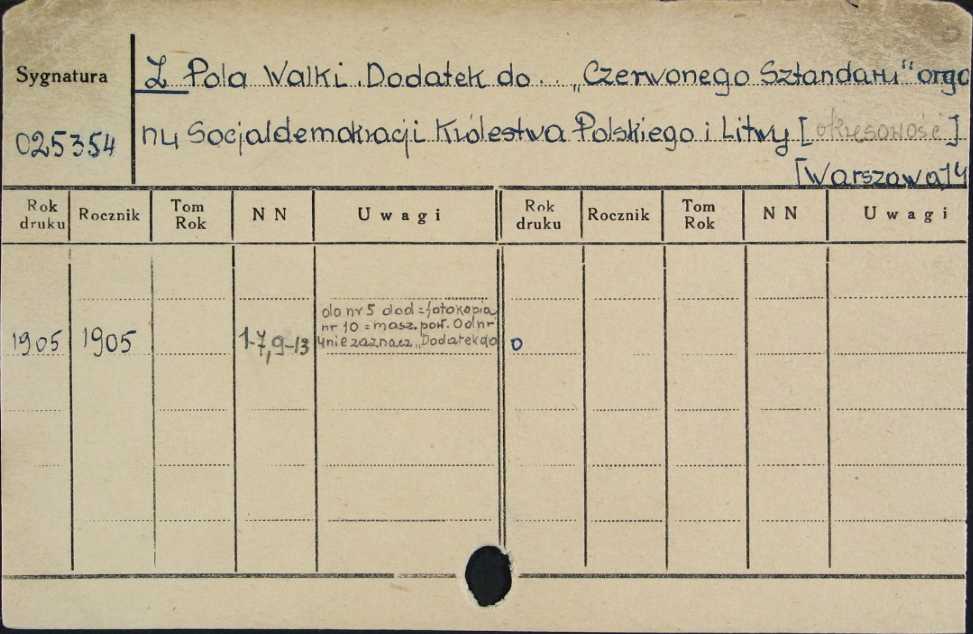 Sygnatura
Z Pola Walki. Dodatek do.. „Czerwonego Sztandaru" orga
025354
nu Socjaldemokracji Królestwa Polskiego i Litwy [okresowość]
[Warszawa] 4
Rok druku Rocznik Tom Rok NN Uwagi Rok druku Rocznik Tom Rok NN Uwagi
do nr 5 dod = fotokopia
nr 10 = masz. pow. Od nr
1905 1905 1-7, 9-13 4 nie zaznacz „Dodatek do